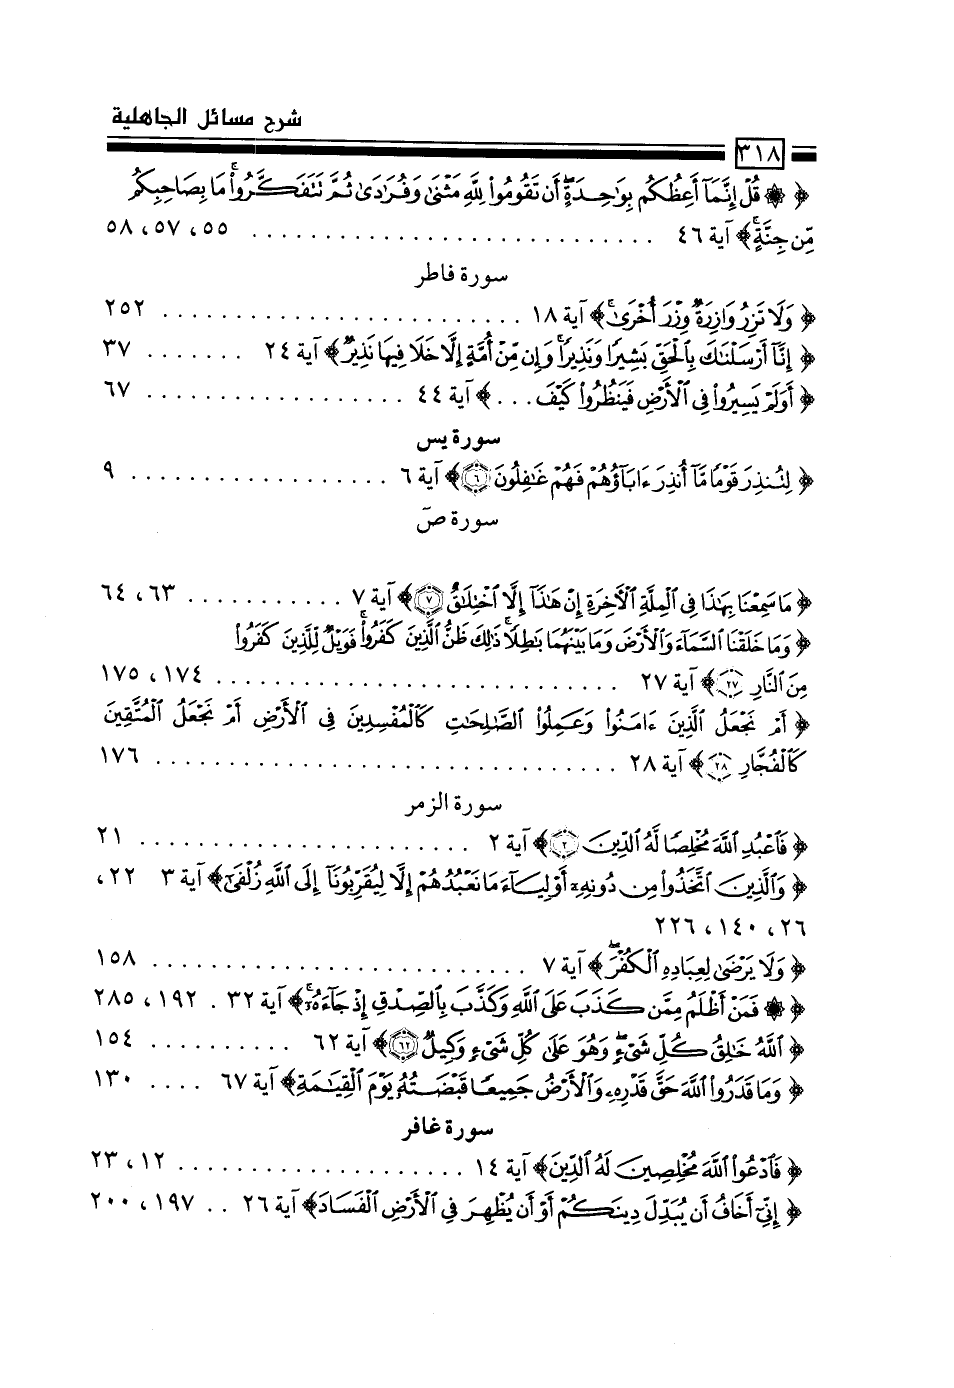 شرح مسائل الجاهلية
٣١٨
﴿ ۞ قُلْ إِنَّمَآ أَعِظُكُم بِوَٰحِدَةٍۖ أَن تَقُومُوا۟ لِلَّهِ مَثْنَىٰ وَفُرَٰدَىٰ ثُمَّ تَتَفَكَّرُوا۟ۚ مَا بِصَاحِبِكُم
مِّن جِنَّةٍۚ ﴾ آية ٤٦ . . . . . . . . . . . . . . . . . . . . . . . . . . . ٥٥، ٥٧، ٥٨
سورة فاطر
﴿ وَلَا تَزِرُ وَازِرَةٌ وِزْرَ أُخْرَىٰۚ ﴾ آية ١٨ . . . . . . . . . . . . . . . . . . . . . . . . ٢٥٢
﴿ إِنَّآ أَرْسَلْنَٰكَ بِٱلْحَقِّ بَشِيرًا وَنَذِيرًاۚ وَإِن مِّنْ أُمَّةٍ إِلَّا خَلَا فِيهَا نَذِيرٌ ﴾ آية ٢٤ . . . . . . . ٣٧
﴿ أَوَلَمْ يَسِيرُوا۟ فِى ٱلْأَرْضِ فَيَنظُرُوا۟ كَيْفَ . . . ﴾ آية ٤٤ . . . . . . . . . . . . . . . . . . ٦٧
سورة يس
﴿ لِتُنذِرَ قَوْمًا مَّآ أُنذِرَ ءَابَآؤُهُمْ فَهُمْ غَٰفِلُونَ ٦ ﴾ آية ٦ . . . . . . . . . . . . . . . . . . ٩
سورة صَ
﴿ مَا سَمِعْنَا بِهَٰذَا فِى ٱلْمِلَّةِ ٱلْـَٔاخِرَةِ إِنْ هَٰذَآ إِلَّا ٱخْتِلَٰقٌ ٧ ﴾ آية ٧ . . . . . . . . . . . ٦٣، ٦٤
﴿ وَمَا خَلَقْنَا ٱلسَّمَآءَ وَٱلْأَرْضَ وَمَا بَيْنَهُمَا بَٰطِلًاۚ ذَٰلِكَ ظَنُّ ٱلَّذِينَ كَفَرُوا۟ۚ فَوَيْلٌ لِّلَّذِينَ كَفَرُوا۟
مِنَ ٱلنَّارِ ٢٧ ﴾ آية ٢٧ . . . . . . . . . . . . . . . . . . . . . . . . . . . ١٧٤، ١٧٥
﴿ أَمْ نَجْعَلُ ٱلَّذِينَ ءَامَنُوا۟ وَعَمِلُوا۟ ٱلصَّٰلِحَٰتِ كَٱلْمُفْسِدِينَ فِى ٱلْأَرْضِ أَمْ نَجْعَلُ ٱلْمُتَّقِينَ
كَٱلْفُجَّارِ ٢٨ ﴾ آية ٢٨ . . . . . . . . . . . . . . . . . . . . . . . . . . . . . . . ١٧٦
سورة الزمر
﴿ فَٱعْبُدِ ٱللَّهَ مُخْلِصًا لَّهُ ٱلدِّينَ ٢ ﴾ آية ٢ . . . . . . . . . . . . . . . . . . . . . . ٢١
﴿ وَٱلَّذِينَ ٱتَّخَذُوا۟ مِن دُونِهِۦٓ أَوْلِيَآءَ مَا نَعْبُدُهُمْ إِلَّا لِيُقَرِّبُونَآ إِلَى ٱللَّهِ زُلْفَىٰٓ ﴾ آية ٣ ٢٢،
٢٦، ١٤٠، ٢٢٦
﴿ وَلَا يَرْضَىٰ لِعِبَادِهِ ٱلْكُفْرَۖ ﴾ آية ٧ . . . . . . . . . . . . . . . . . . . . . . . . . ١٥٨
﴿ ۞ فَمَنْ أَظْلَمُ مِمَّن كَذَبَ عَلَى ٱللَّهِ وَكَذَّبَ بِٱلصِّدْقِ إِذْ جَآءَهُۥٓۚ ﴾ آية ٣٢ . ١٩٢، ٢٨٥
﴿ ٱللَّهُ خَٰلِقُ كُلِّ شَىْءٍۖ وَهُوَ عَلَىٰ كُلِّ شَىْءٍ وَكِيلٌ ٦٢ ﴾ آية ٦٢ . . . . . . . . . . ١٥٤
﴿ وَمَا قَدَرُوا۟ ٱللَّهَ حَقَّ قَدْرِهِۦ وَٱلْأَرْضُ جَمِيعًا قَبْضَتُهُۥ يَوْمَ ٱلْقِيَٰمَةِ ﴾ آية ٦٧ . . . . ١٣٠
سورة غافر
﴿ فَٱدْعُوا۟ ٱللَّهَ مُخْلِصِينَ لَهُ ٱلدِّينَ ﴾ آية ١٤ . . . . . . . . . . . . . . . . . . . . ١٢، ٢٣
﴿ إِنِّىٓ أَخَافُ أَن يُبَدِّلَ دِينَكُمْ أَوْ أَن يُظْهِرَ فِى ٱلْأَرْضِ ٱلْفَسَادَ ﴾ آية ٢٦ . . ١٩٧، ٢٠٠